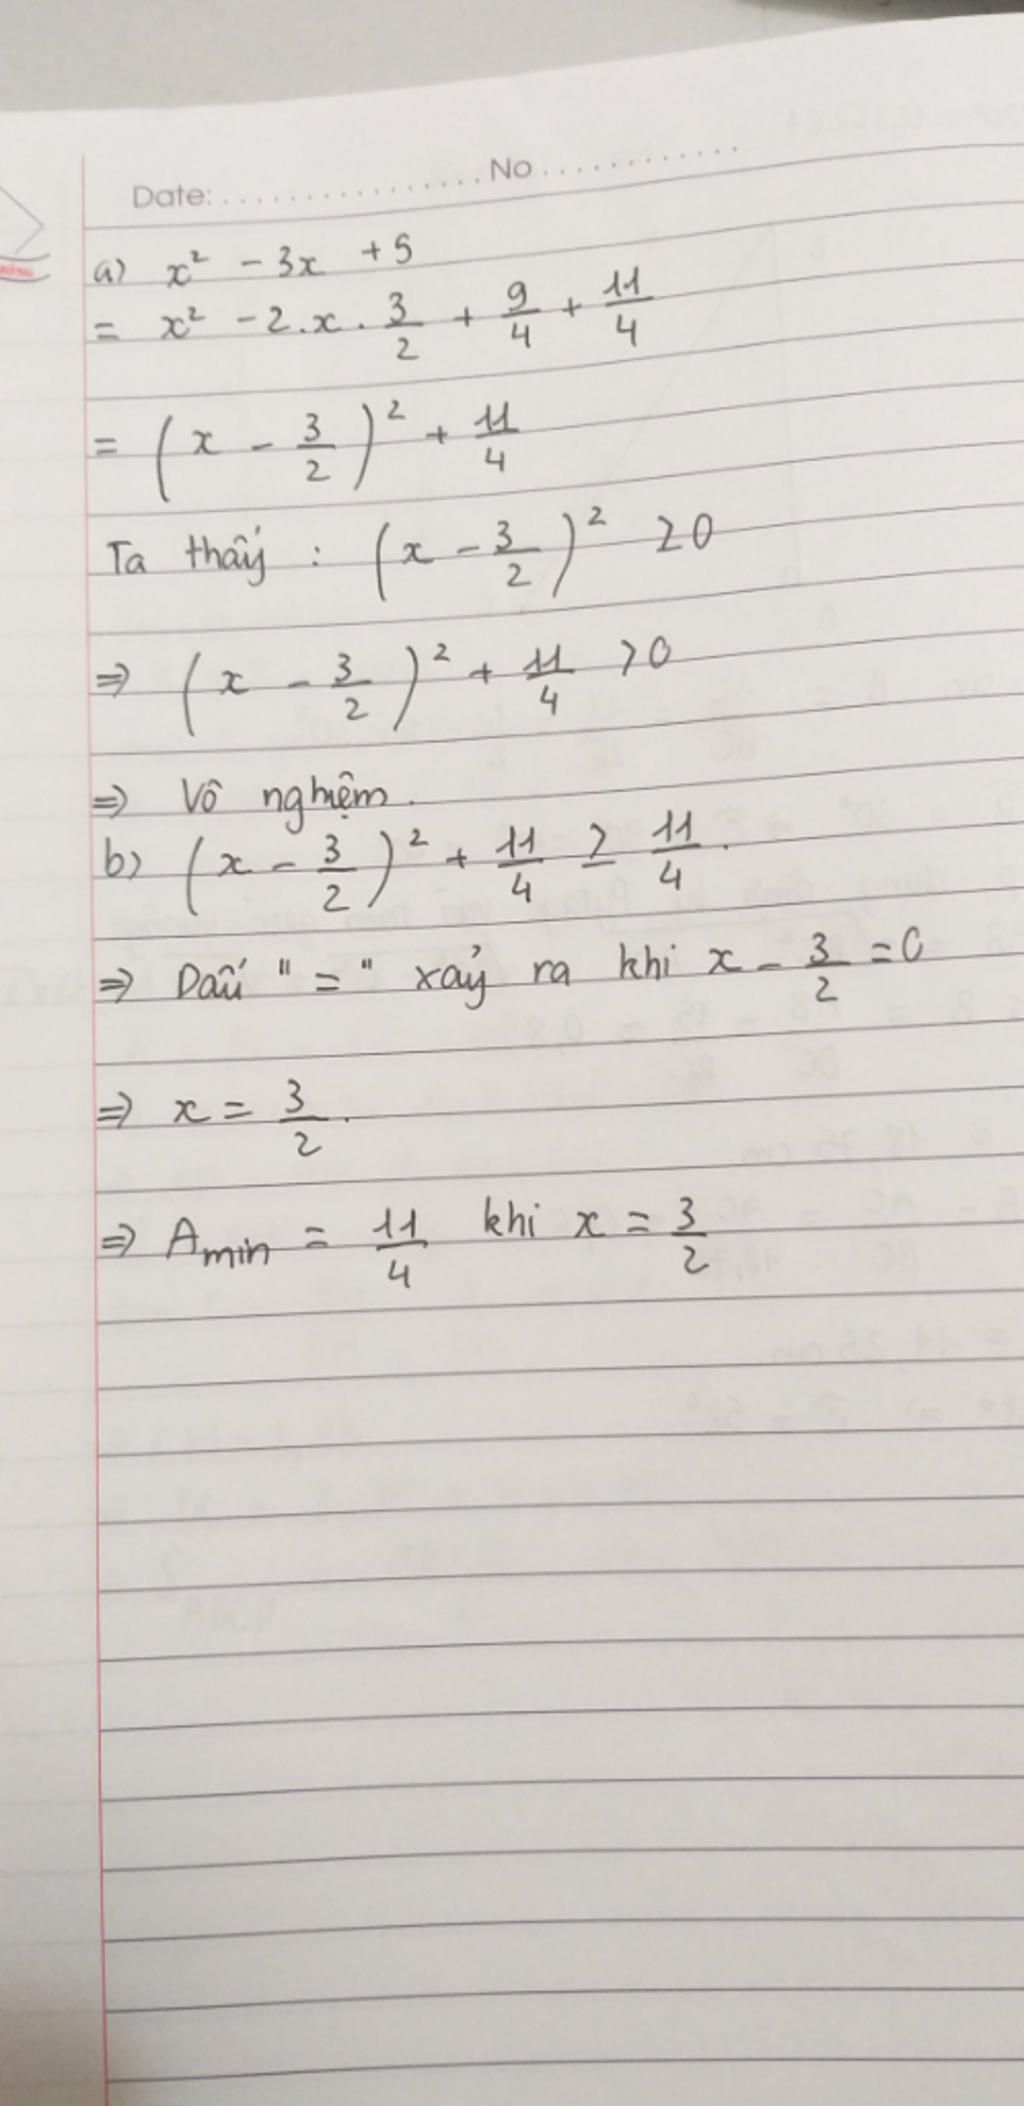 Date: ................ No ............
a) x² - 3x + 5
= x² - 2.x. 3/2 + 9/4 + 11/4
= (x - 3/2)² + 11/4
Ta thấy : (x - 3/2)² ≥ 0
⇒ (x - 3/2)² + 11/4 > 0
⇒ Vô nghiệm.
b) (x - 3/2)² + 11/4 ≥ 11/4.
⇒ Dấu "=" xảy ra khi x - 3/2 = 0
⇒ x = 3/2.
⇒ Amin = 11/4 khi x = 3/2